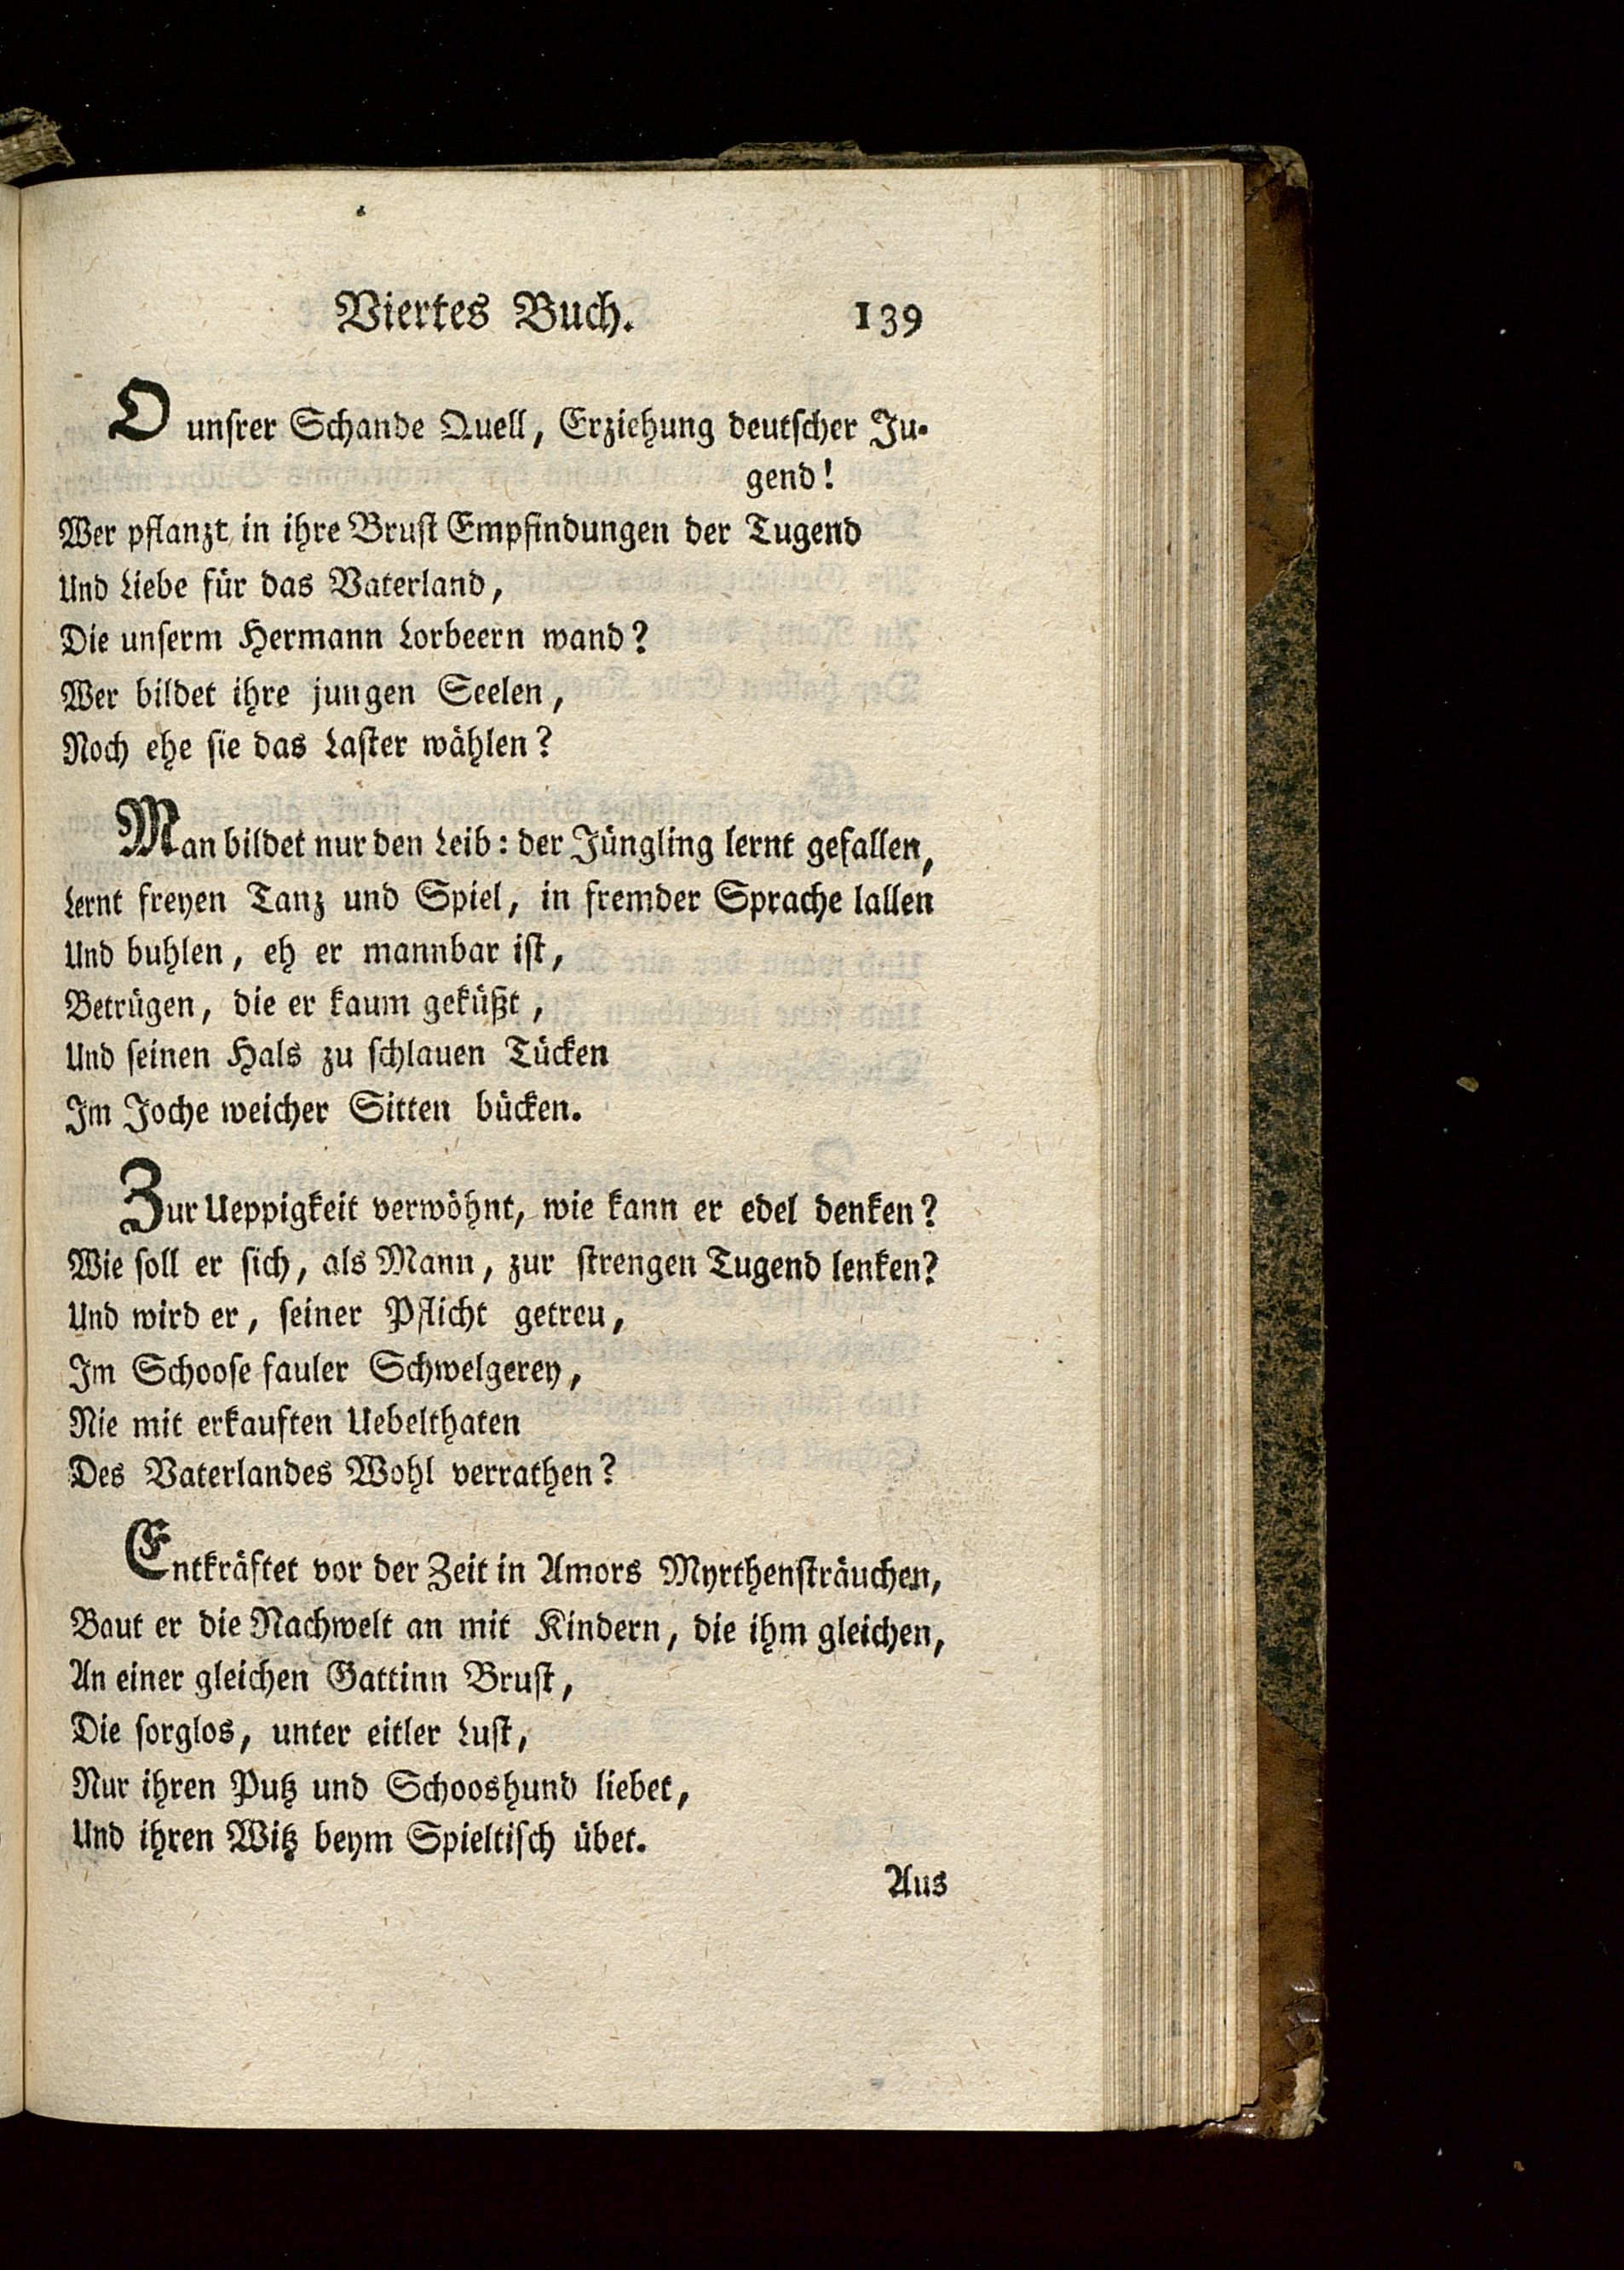 Viertes Buch. 139
O unsrer Schande Quell, Erziehung deutscher Ju-
gend!
Wer pflanzt in ihre Brust Empfindungen der Tugend
Und Liebe für das Vaterland,
Die unserm Hermann Lorbeern wand?
Wer bildet ihre jungen Seelen,
Noch ehe sie das Laster wählen?
Man bildet nur den Leib: der Jüngling lernt gefallen,
Lernt freyen Tanz und Spiel, in fremder Sprache lallen
Und buhlen, eh er mannbar ist,
Betrügen, die er kaum geküßt,
Und seinen Hals zu schlauen Tücken
Im Joche weicher Sitten bücken.
Zur Ueppigkeit verwöhnt, wie kann er edel denken?
Wie soll er sich, als Mann, zur strengen Tugend lenken?
Und wird er, seiner Pflicht getreu,
Im Schoose fauler Schwelgerey,
Nie mit erkauften Uebelthaten
Des Vaterlandes Wohl verrathen?
Entkräftet vor der Zeit in Amors Myrthensträuchen,
Baut er die Nachwelt an mit Kindern, die ihm gleichen,
An einer gleichen Gattinn Brust,
Die sorglos, unter eitler Lust,
Nur ihren Putz und Schooshund liebet,
Und ihren Witz beym Spieltisch übet.
Aus